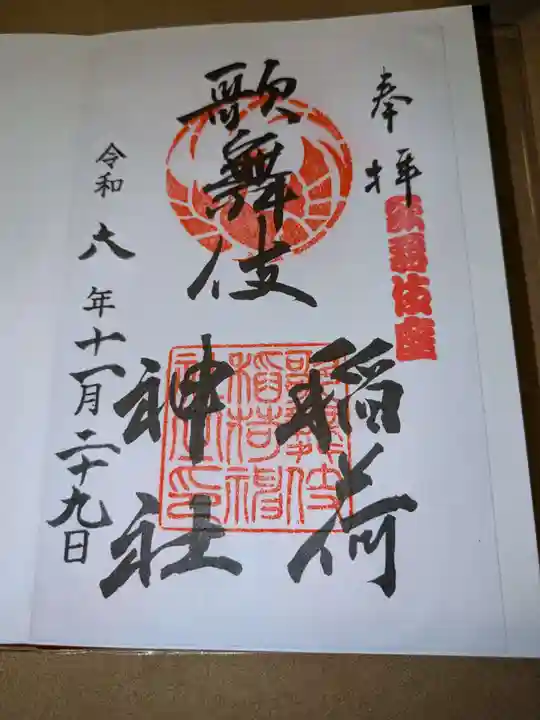 奉拝
歌舞伎座
歌舞伎
稲荷
神社
歌舞伎
稲荷神
社印
令和六年十一月二十九日